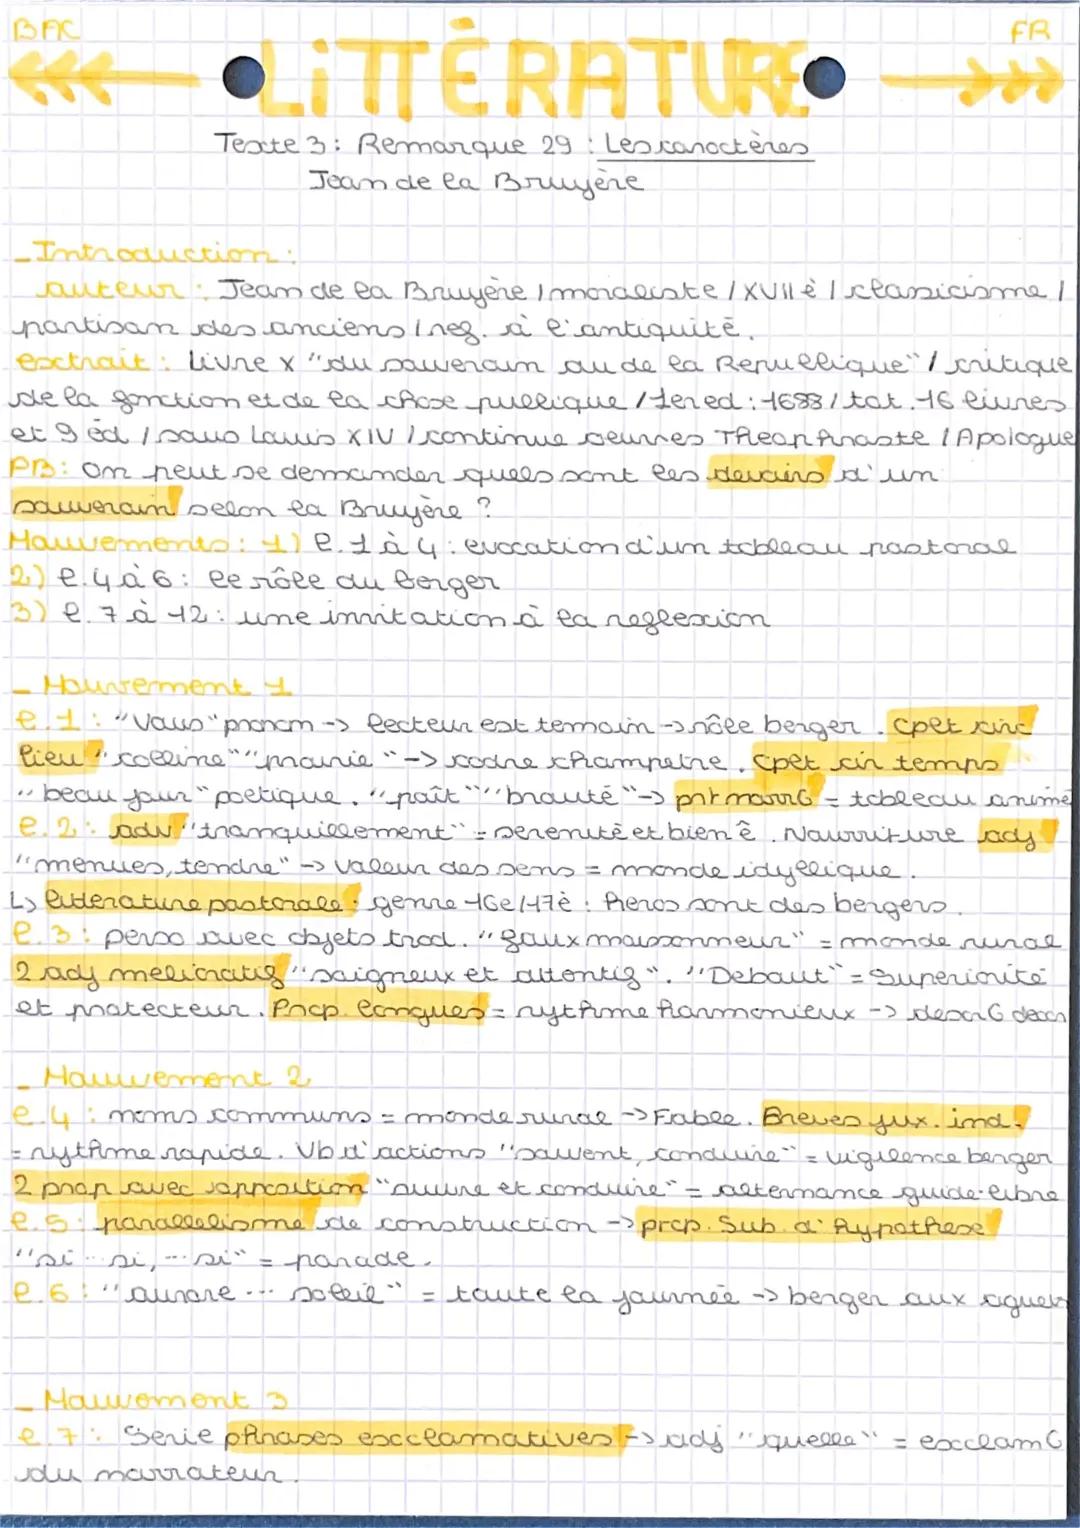 BAC
FR
LITTÉRATURE
Texte 3 : Remarque 29 : Les caractères
Jean de la Bruyère
_Introduction :
auteur : Jean de la Bruyère / moraliste / XVIIè / classicisme /
partisan des anciens / ref. à l'antiquité.
extrait : Livre X "du souverain ou de la Republique" / critique
de la fonction et de la chose publique / 1er ed : 1688 / tot. 16 livres
et 9 éd / sous Louis XIV / continue oeuvres Théophraste / Apologue
PB : On peut se demander quels sont les devoirs d'un
souverain selon la Bruyère ?
Mouvements : 1) l. 1 à 4 : evocation d'un tableau pastoral
2) l. 4 à 6 : le rôle du berger
3) l. 7 à 12 : une invitation à la reflexion
_ Mouvement 1
l. 1 : "Vous" pronom -> lecteur est temoin -> rôle berger. cplet circ
lieu "colline" "prairie" -> cadre champetre. cplet cir temps
"beau jour" poetique. "paît" "broute" -> prt narrG = tableau animé
l. 2 : adv "tranquillement" = serenité et bien ê. Nourriture adj
"menues, tendre" -> valeur des sens = monde idyllique.
L> litterature pastorale : genre 16e/17è : heros sont des bergers.
l. 3 : perso avec objets trad. "faux moissonneur" = monde rural
2 adj melioratif "soigneux et attentif". "Debout" = Superiorité
et protecteur. Prop. longues = rythme harmonieux -> descrG decor
_ Mouvement 2
l. 4 : noms communs = monde rural -> Fable. Breves jux. ind.
= rythme rapide. Vb d'actions "suivent, conduire" = vigilence berger
2 prop avec opposition "suivre et conduire" = alternance guide-libre
l. 5 : parallelisme de construction -> prop. Sub. d'hypothese
"si ... si, ... si" = parade.
l. 6 : "aurore ... soleil" = toute la journée -> berger aux aguets
_ Mouvement 3
l. 7 : Serie phrases exclamatives -> adj "quelle" = exclamG
du narrateur.